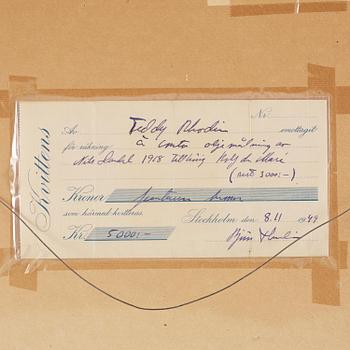 Kvittens
Nr
Av Teddy Rhodin emottagit
för räkning à conto oljemålning av
Nils Dardel 1918 tillhörig Rolf de Maré
(rest 3000:-)
Kronor femtusen kronor
som härmed kvitteras.
Stockholm den 8.11 1949
Kr. 5000:-